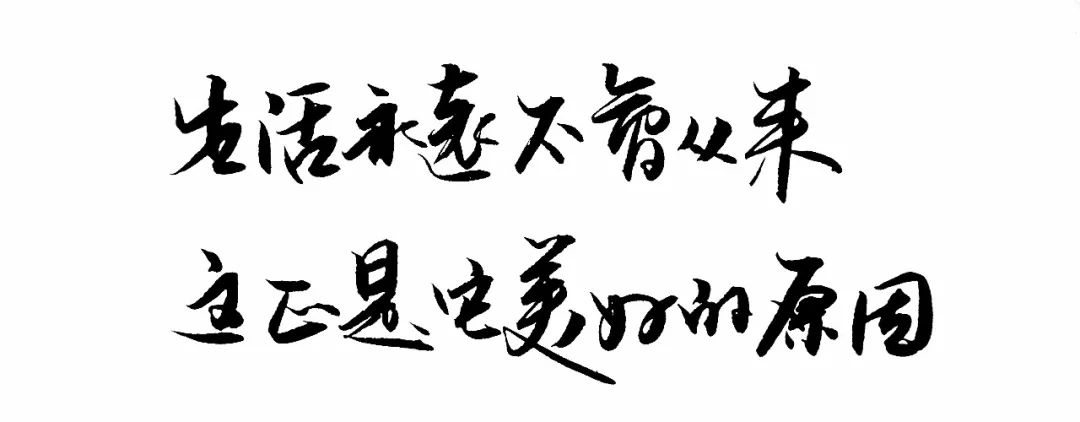 生活永远不曾从来
这正是它美好的原因